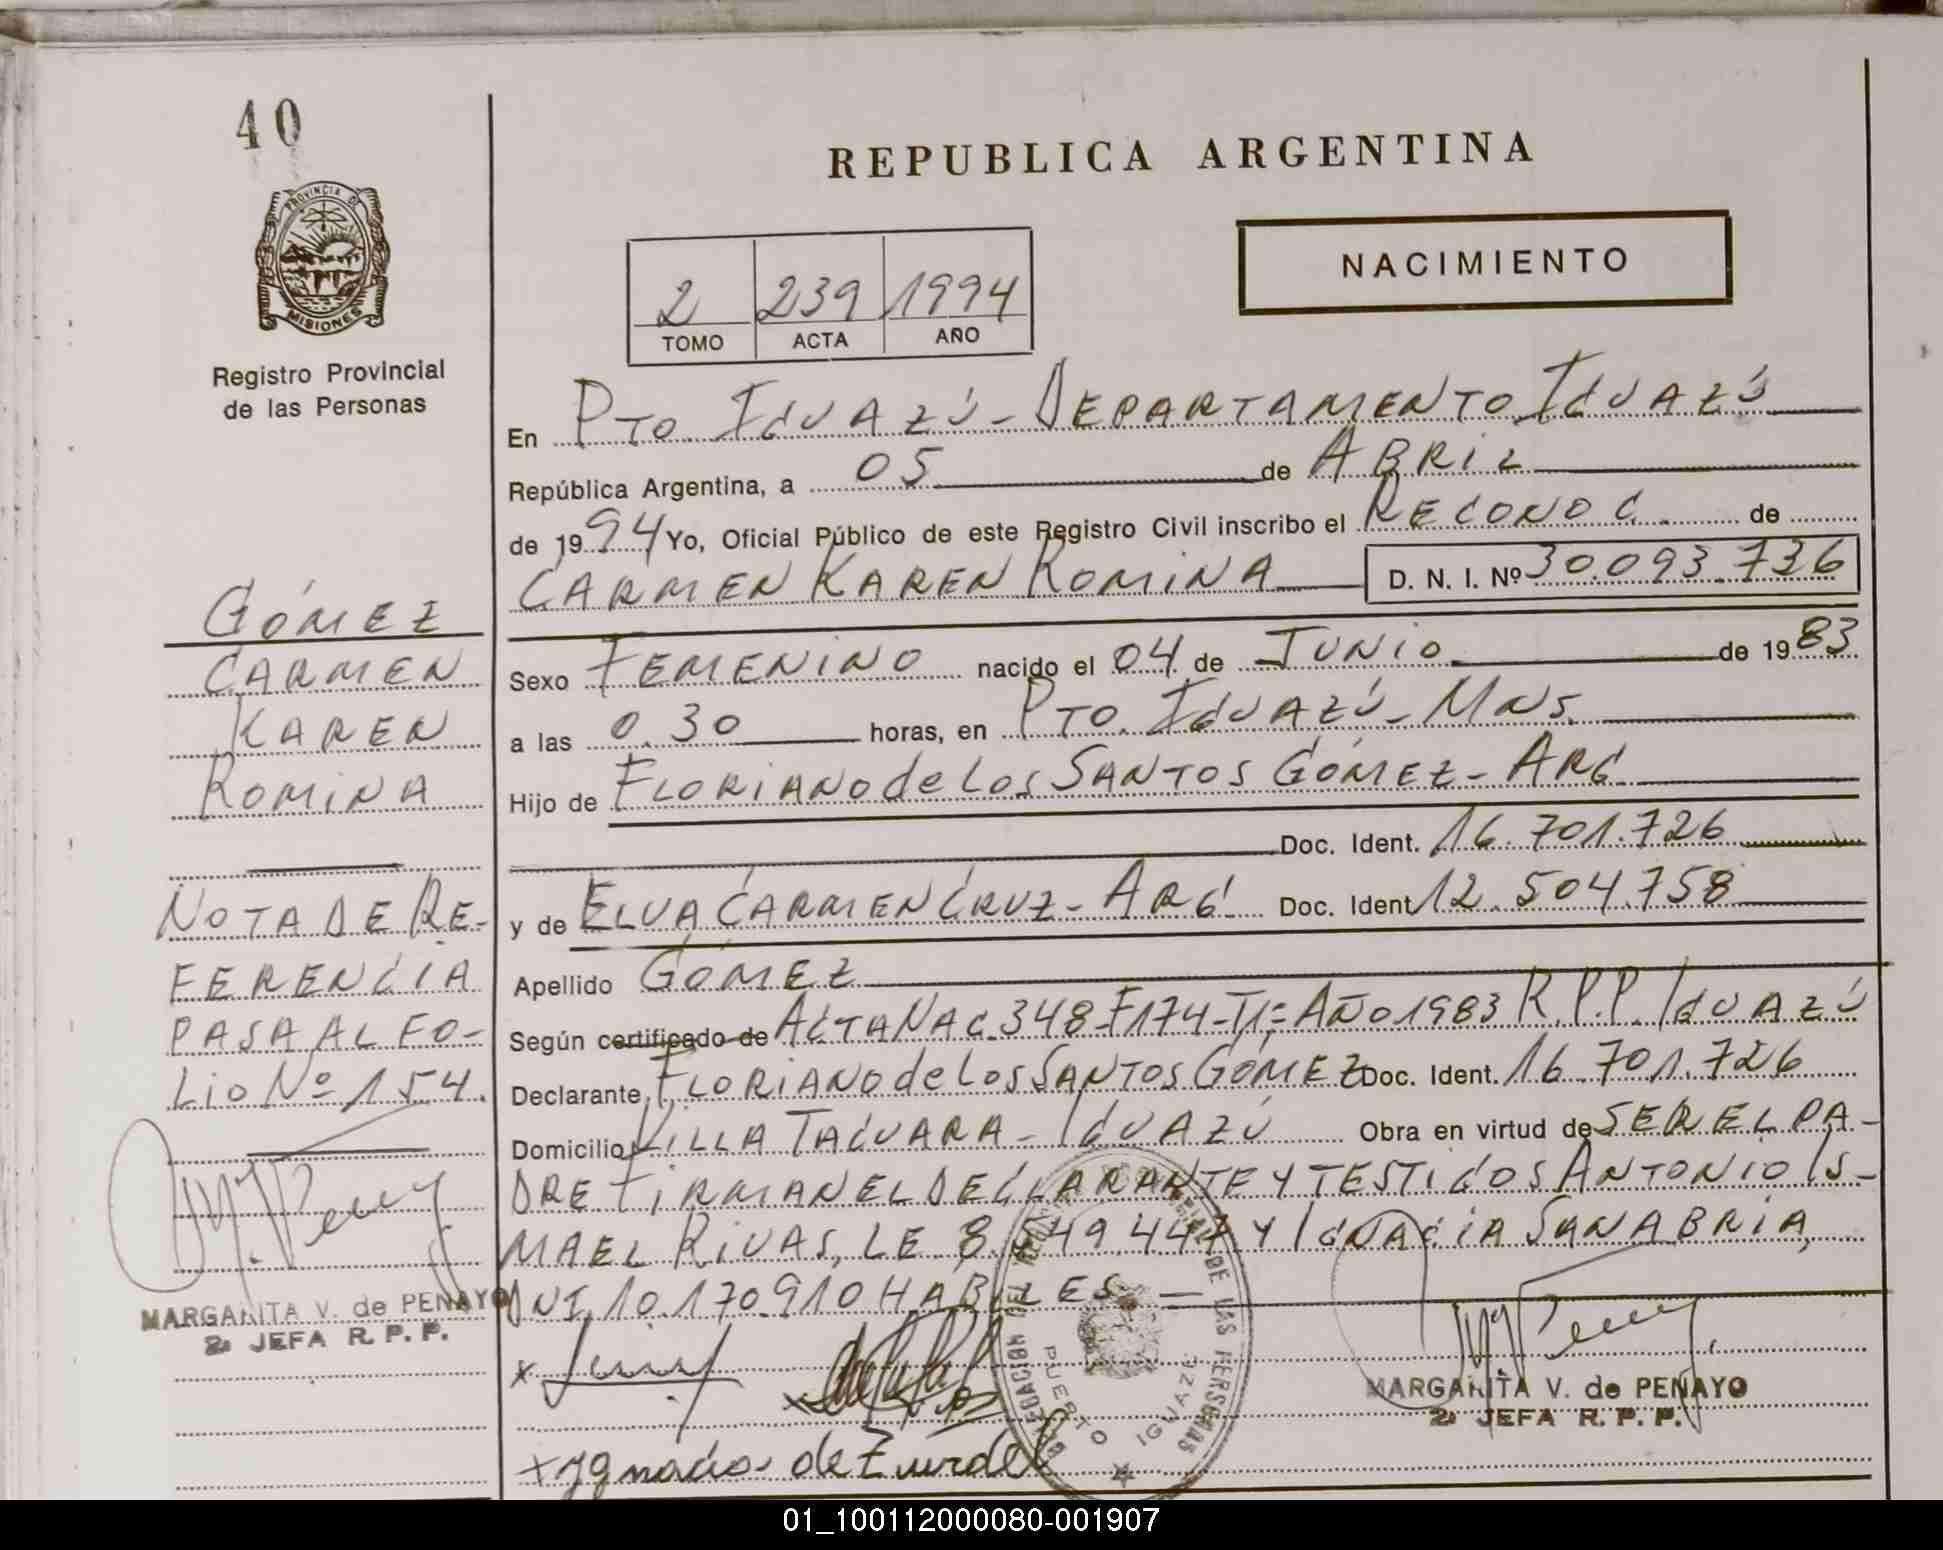 40
REPUBLICA ARGENTINA
PROVINCIA DE
MISIONES
NACIMIENTO
2 239 1994
TOMO ACTA AÑO
Registro Provincial
de las Personas
En PTO. IGUAZÚ - DEPARTAMENTO IGUAZÚ
República Argentina, a 05 de ABRIL
de 1994 Yo, Oficial Público de este Registro Civil inscribo el RECONOC. de
CARMEN KAREN ROMINA D. N. I. Nº 30.093.736
GÓMEZ
CARMEN
KAREN
ROMINA
Sexo FEMENINO nacido el 04 de JUNIO de 1983
a las 0.30 horas, en PTO. IGUAZÚ - MNS.
Hijo de FLORIANO de Los SANTOS GÓMEZ - ARG
Doc. Ident. 16.701.726
y de ELVA CARMEN CRUZ - ARG. Doc. Ident. 12.504.758
Apellido GÓMEZ
Según certificado de ACTA NAC. 348-F174-T1º AÑO 1983 R.P.P. IGUAZÚ
Declarante FLORIANO de Los SANTOS GÓMEZ Doc. Ident. 16.701.726
Domicilio VILLA TACUARA - IGUAZÚ Obra en virtud de SER EL PA-
DRE FIRMAN EL DECLARANTE Y TESTIGOS ANTONIO IS-
MAEL RIVAS, LE 8.549.447 Y IGNACIA SANABRIA,
DNI 10.170.910 HABILES
NOTA DE RE-
FERENCIA
PASA AL FO-
LIO Nº 154.
MARGARITA V. de PENAYO
2ª JEFA R. P. P.
DE LAS PERSONAS
PUERTO IGUAZU
MARGARITA V. de PENAYO
2ª JEFA R. P. P.
01_100112000080-001907